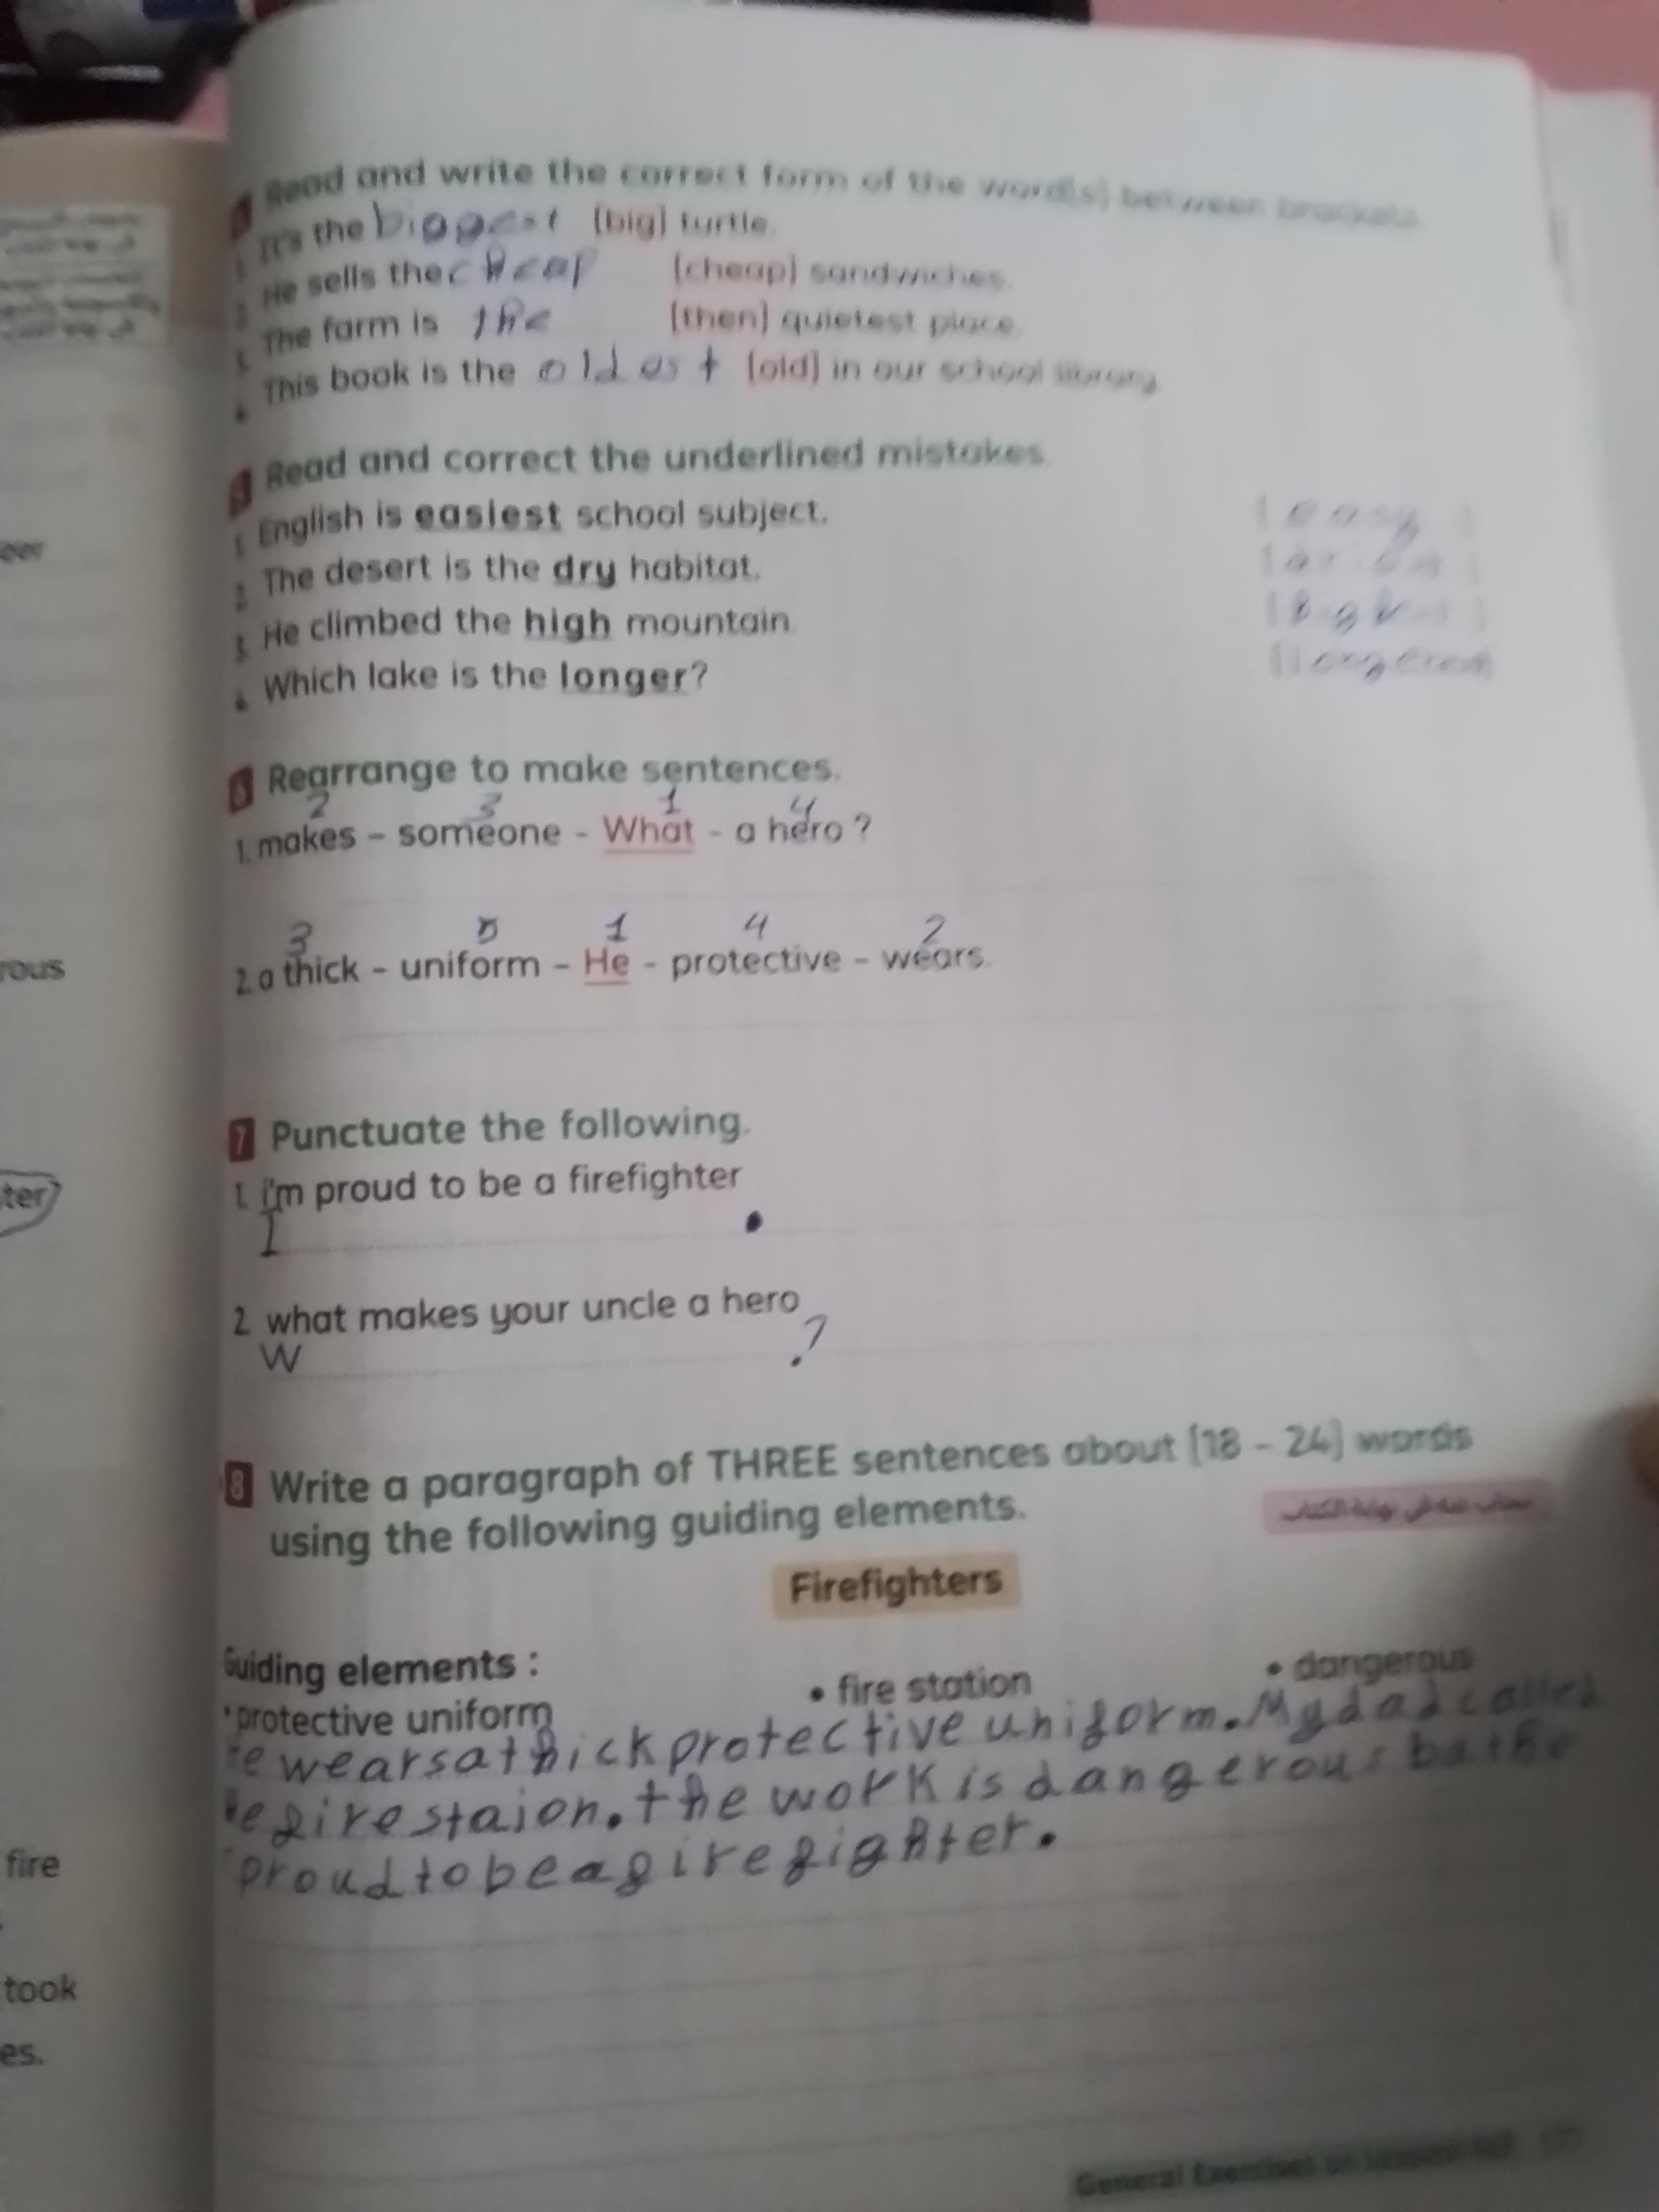 Read and write the correct form of the word(s) between brackets.
1. It's the biggest [big] turtle.
2. He sells the cheap [cheap] sandwiches.
3. The farm is the [then] quietest place.
4. This book is the oldest [old] in our school library.
Read and correct the underlined mistakes.
1. English is easiest school subject. [easy]
2. The desert is the dry habitat.
3. He climbed the high mountain.
4. Which lake is the longer?
6 Rearrange to make sentences.
2 3 1 4
1. makes - someone - What - a hero ?
3 5 1 4 2
2. a thick - uniform - He - protective - wears.
7 Punctuate the following.
1. i'm proud to be a firefighter
I .
2. what makes your uncle a hero
W ?
8 Write a paragraph of THREE sentences about [18 - 24] words
using the following guiding elements.
Firefighters
Guiding elements :
• protective uniform • fire station • dangerous
wears a thick protective uniform. My dad called
fire staion. the work is dangerous
proud to be a firefighter.
General Exercises on
eer
rous
ter
fire
took
es.